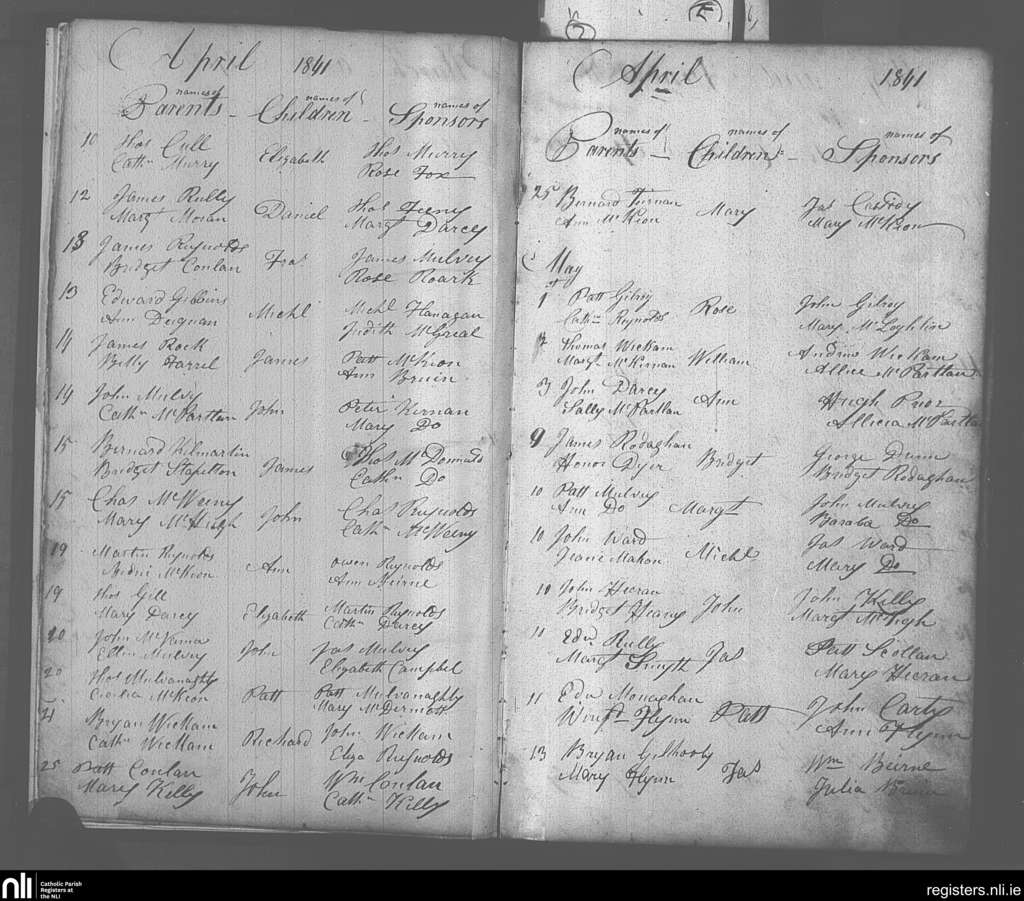 April 1841
names of names of names of
Parents - Children - Sponsors
10 Thos Cull
Cathn Murry Elizabeth Thos Murry
Rose Fox
12 James Rielly
Margt Moran Daniel Thos Feeny
Margt Darcy
13 James Reynolds
Bridget Conlan Fras James Mulvey
Rose Roark
13 Edward Gibbins
Ann Deignan Michl Michl Flanagan
Judith McGreal
14 James Rock
Billy Farrel James Patt McKion
Ann Bruin
14 John Mulvey
Cathn McPartlan John Peter Kernan
Mary Do
15 Bernard Kilmartin
Bridget Stapelton James Thos McDonnald
Cathn Do
15 Chas McWeeny
Mary McHugh John Chas Reynolds
Cathn McWeeny
19 Martin Reynolds
McKeon Ann Owen Reynolds
Ann Beirne
19 Thos Gill
Mary Darcy Elizabeth Martin Reynolds
Cathn Darcy
20 John McKenna
Ellin Mulvey John Jas Mulvey
Elizabeth Campbel
20 Thos Mulvanaghty
Cicilia McKeon Patt Patt Mulvanaghty
Mary McDermott
21 Bryan Wickam
Cathn Wickam Richard John Wickam
Eliza Reynolds
25 Patt Conlan
Mary Kelly John Wm Conlan
Cathn Kelly
April 1841
names of names of names of
Parents - Children - Sponsors
25 Bernard Turnan
Ann McKeon Mary Jas Casdroy
Mary McKeon
May
1st Patt Gilroy
Cathn Reynolds Rose John Gilroy
Mary McLoghlin
2 Thomas Wickam
Margt McKernan William Andrew Wickam
Allice McPartlan
3 John Darcy
Sally McPartlan Ann Hugh Prior
Allicia McPartlan
9 James Rodaghan
Honor Dyer Bridget George Dunne
Bridget Rodaghan
10 Patt Mulvey
Ann Do Margt John Mulvey
Baraba Do
10 John Ward
Jeane Mahon Michl Jas Ward
Mary Do
10 John Hieran
Bridget Heany John John Kelly
Margt McHugh
11 Edw Rielly
Margt Smyth Jas Patt Scollan
Mary Hieran
11 Edw Monaghan
Winft Flynn Patt John Carty
Ann Flynn
13 Bryan Gilhooly
Mary Flynn Jas Wm Beirne
Julia
nli
Catholic Parish
Registers at
the NLI
registers.nli.ie